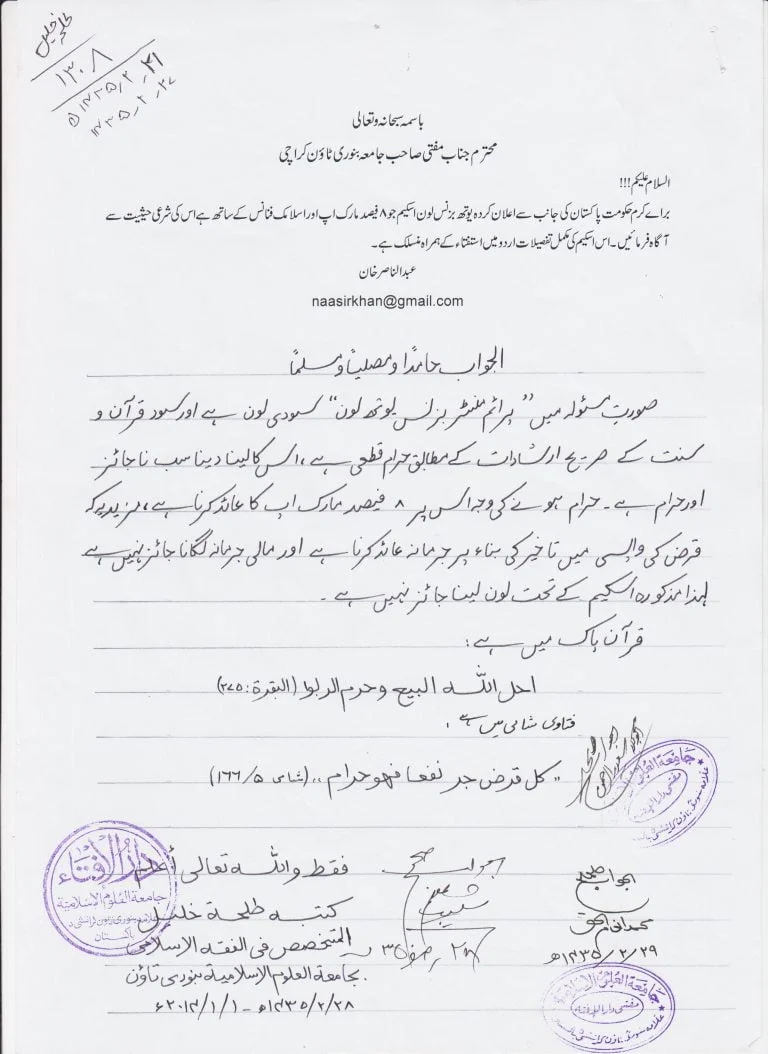 طلحہ خلیل
۱۳۰۸
باسمہ سبحانہ وتعالی
محترم جناب مفتی صاحب جامعہ بنوری ٹاؤن کراچی
السلام علیکم!!!
برائے کرم حکومت پاکستان کی جانب سے اعلان کردہ یوتھ بزنس لون اسکیم جو ۸ فیصد مارک اپ اور اسلامک فنانس کے ساتھ ہے اس کی شرعی حیثیت سے
آگاہ فرمائیں۔ اس اسکیم کی مکمل تفصیلات اردو میں استفتاء کے ہمراہ منسلک ہے۔
عبدالناصر خان
naasirkhan@gmail.com
الجواب حامدًا ومصلیًا ومسلمًا
صورتِ مسئولہ میں "پرائم منسٹر بزنس یوتھ لون" سودی لون ہے اور سود قرآن و
سنت کے صریح ارشادات کے مطابق حرام قطعی ہے، اس کا لینا دینا سب ناجائز
اور حرام ہے۔ حرام ہونے کی وجہ اس پر ۸ فیصد مارک اپ کا عائد کرنا ہے، مزید یہ کہ
قرض کی واپسی میں تاخیر کی بناء پر جرمانہ عائد کرنا ہے اور مالی جرمانہ لگانا جائز نہیں ہے
لہذا مذکورہ اسکیم کے تحت لون لینا جائز نہیں ہے۔
قرآن پاک میں ہے:
احل اللہ البیع وحرم الربوا (البقرۃ: ۲۷۵)
فتاوی شامی میں ہے:
"کل قرض جر نفعا فھو حرام" (شامی ۵/۱۶۶)
الجواب صحیح
فقط واللہ تعالی أعلم
کتبہ طلحۃ خلیل
المتخصص فی الفقہ الاسلامی
بجامعۃ العلوم الاسلامیۃ بنوری تاؤن
۱۴۳۵/۲/۲۸ھ - ۲۰۱۴/۱/۱ء
الجواب صحیح
محمد انعام الحق
۱۴۳۵/۲/۲۹ھ
دار الإفتاء
جامعة العلوم الاسلامیة
علامہ بنوری تاون کراتشی
باکستان